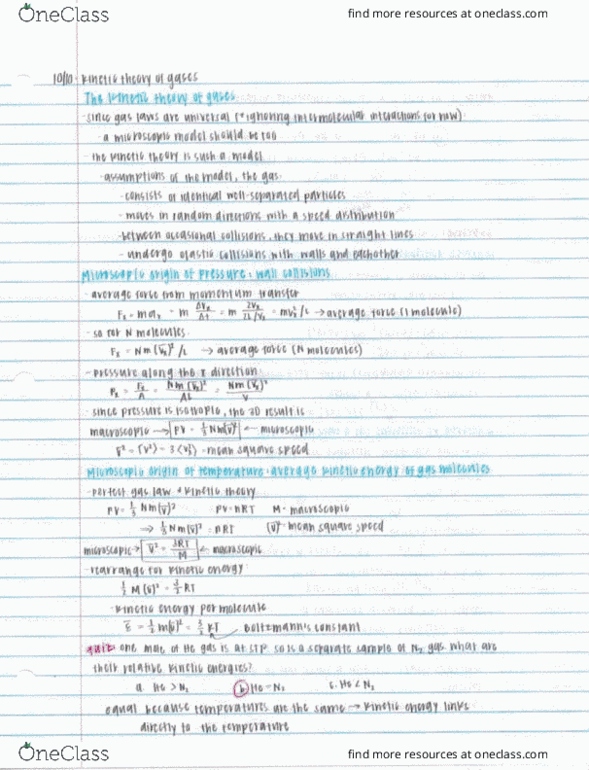 OneClass
find more resources at oneclass.com
10/10 · kinetic theory of gases
The kinetic theory of gases
- since gas laws are universal (*ignoring intermolecular interactions for now)
- a microscopic model should be too
- the kinetic theory is such a model
- assumptions of the model, the gas:
- consists of identical well-separated particles
- moves in random directions with a speed distribution
- between occasional collisions, they move in straight lines
- undergo elastic collisions with walls and eachother
Microscopic origin of pressure: wall collisions
- average force from momentum transfer
Fx = max = m Δvx/Δt = m 2vx/(2L/vx) = mvx²/L → average force (1 molecule)
- so for N molecules
Fx = Nm(v̄x)²/L → average force (N molecules)
- pressure along the x direction
Px = Fx/A = Nm(v̄x)²/AL = Nm(v̄x)²/V
- since pressure is isotropic, the 3D result is
macroscopic → PV = 1/3 Nm(v̄)² ← microscopic
v̄² = ⟨v²⟩ = 3⟨vx²⟩ - mean square speed
Microscopic origin of temperature: average kinetic energy of gas molecules
- perfect gas law & kinetic theory
PV = 1/3 Nm(v̄)² PV = nRT M - macroscopic
⇒ 1/3 Nm(v̄)² = nRT (v̄)² - mean square speed
microscopic → v̄² = 3RT/M ← macroscopic
- rearrange for kinetic energy
1/2 M(v̄)² = 3/2 RT
- kinetic energy per molecule
ε̄ = 1/2 m(v̄)² = 3/2 kT Boltzmann's constant
quiz: one mole of He gas is at STP so is a separate sample of N₂ gas. what are
their relative kinetic energies?
a. He > N₂ b. He = N₂ c. He < N₂
equal because temperatures are the same → kinetic energy links
directly to the temperature
OneClass
find more resources at oneclass.com